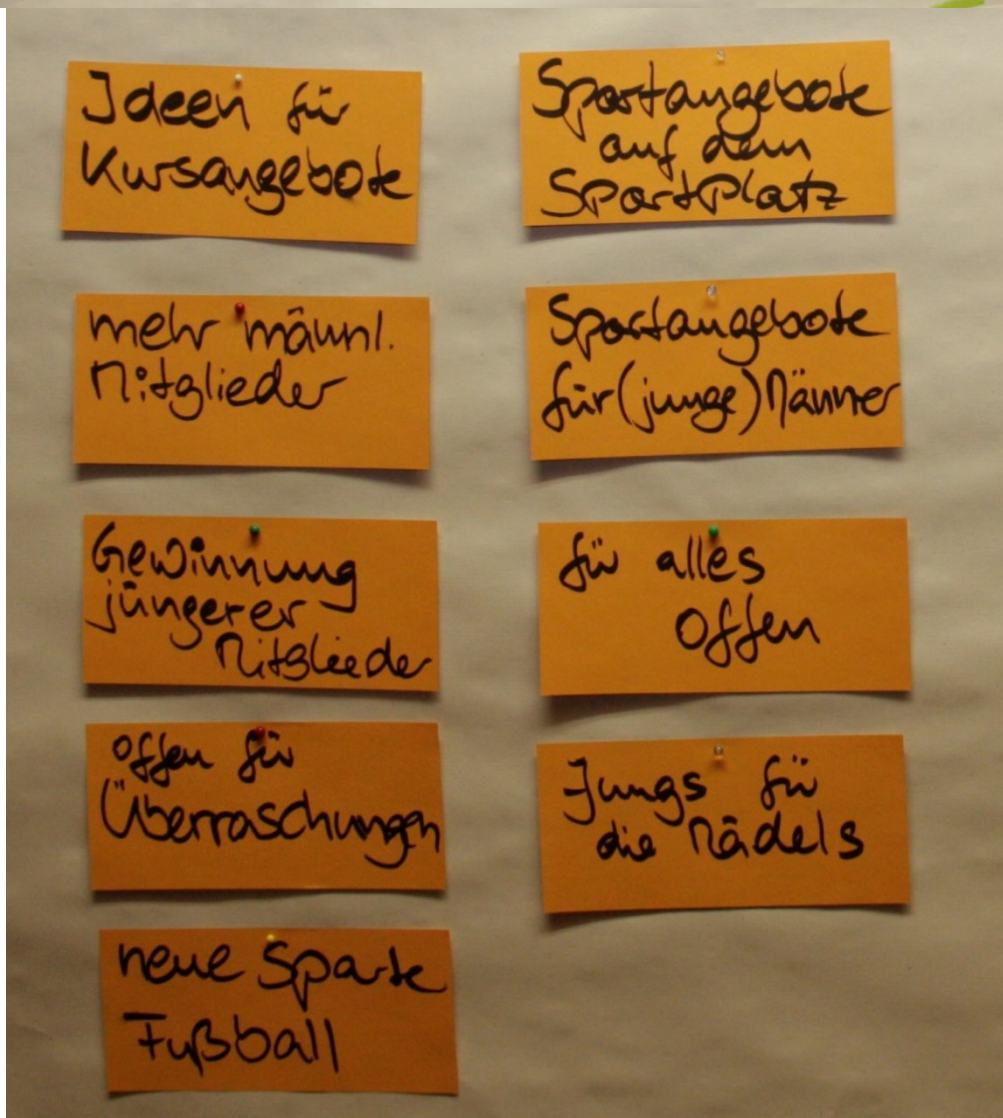 Ideen für
Kursangebote
mehr männl.
Mitglieder
Gewinnung
jüngerer
Mitglieder
offen für
Überraschungen
neue Sparte
Fußball
Sportangebote
auf dem
SportPlatz
Sportangebote
für (junge) Männer
für alles
offen
Jungs für
die Mädels